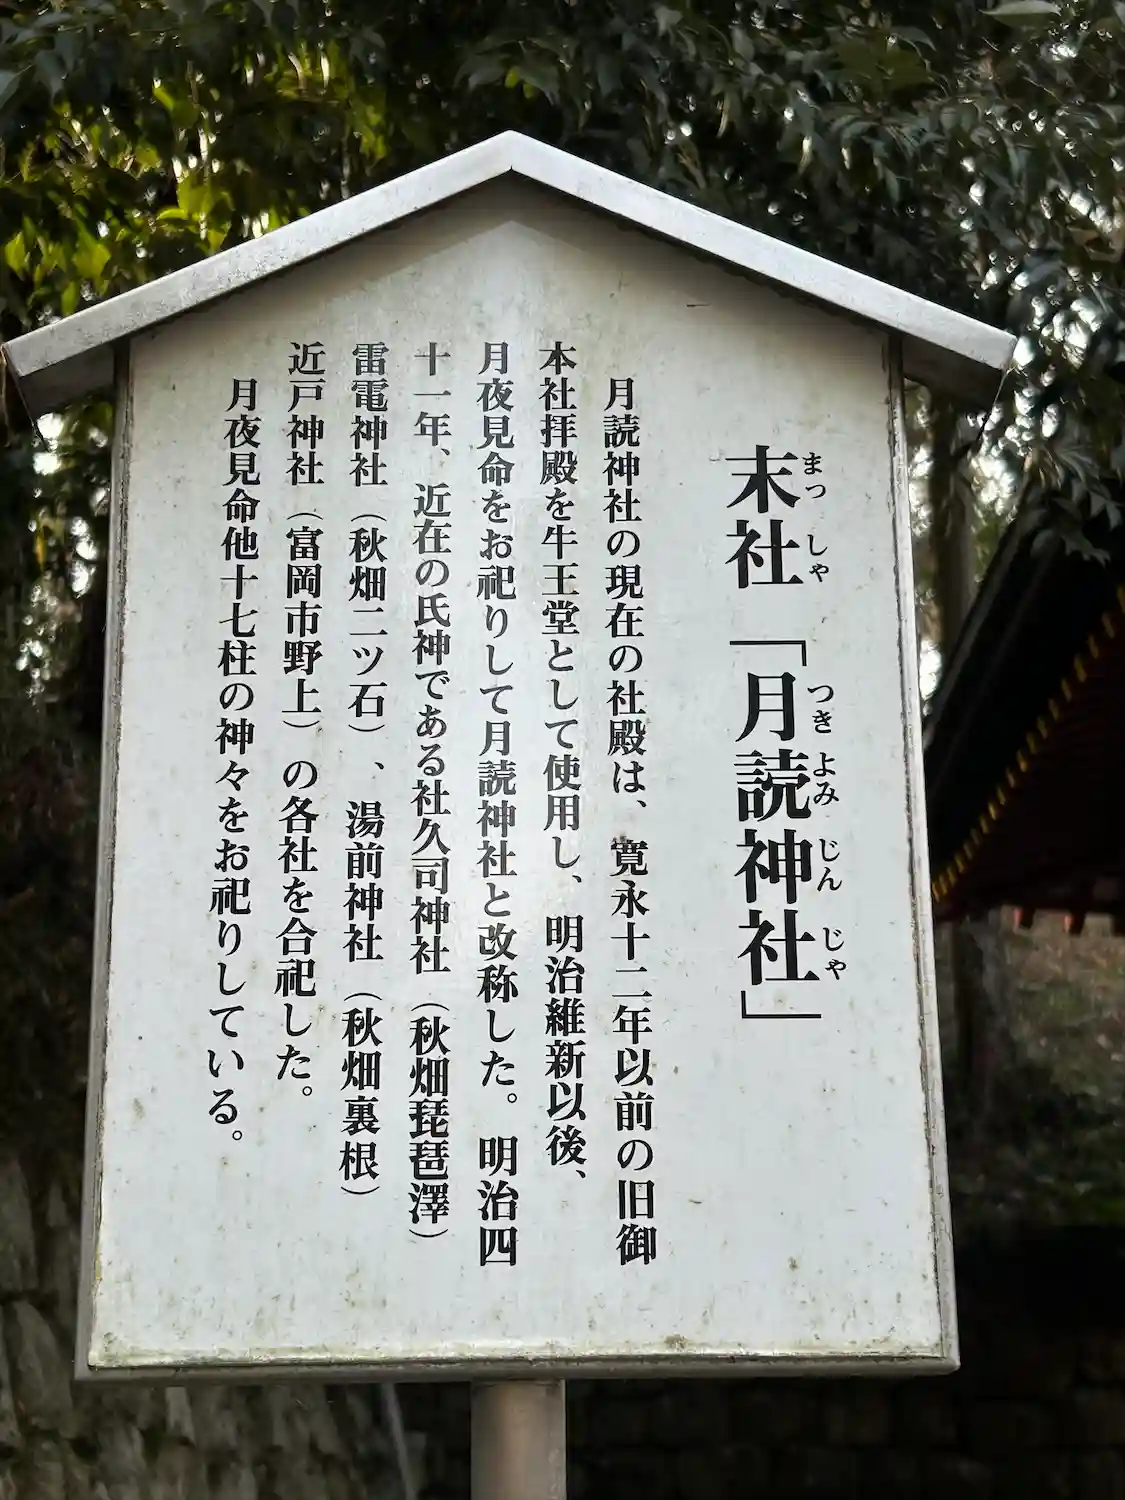 末社「月読神社」
まつしゃ つきよみじんじゃ
月読神社の現在の社殿は、寛永十二年以前の旧御
本社拝殿を牛王堂として使用し、明治維新以後、
月夜見命をお祀りして月読神社と改称した。明治四
十一年、近在の氏神である社久司神社（秋畑琵琶澤）
雷電神社（秋畑二ツ石）、湯前神社（秋畑裏根）
近戸神社（富岡市野上）の各社を合祀した。
月夜見命他十七柱の神々をお祀りしている。